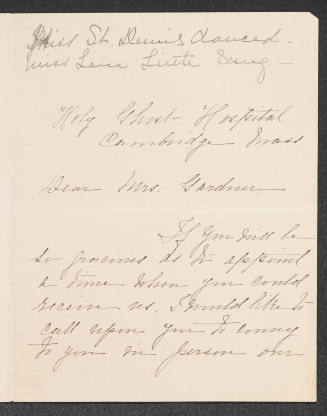 Miss St. Denis danced -
Miss Lena Little Sang -
Holy Ghost Hospital
Cambridge Mass
Dear Mrs. Gardner
If you will be
so gracious as to appoint
a time when you could
receive us, I would like to
call upon you to convey
to you in person our